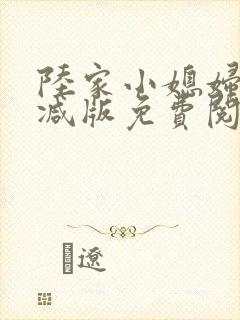 陸家小媳婦
減版免費閱
遼